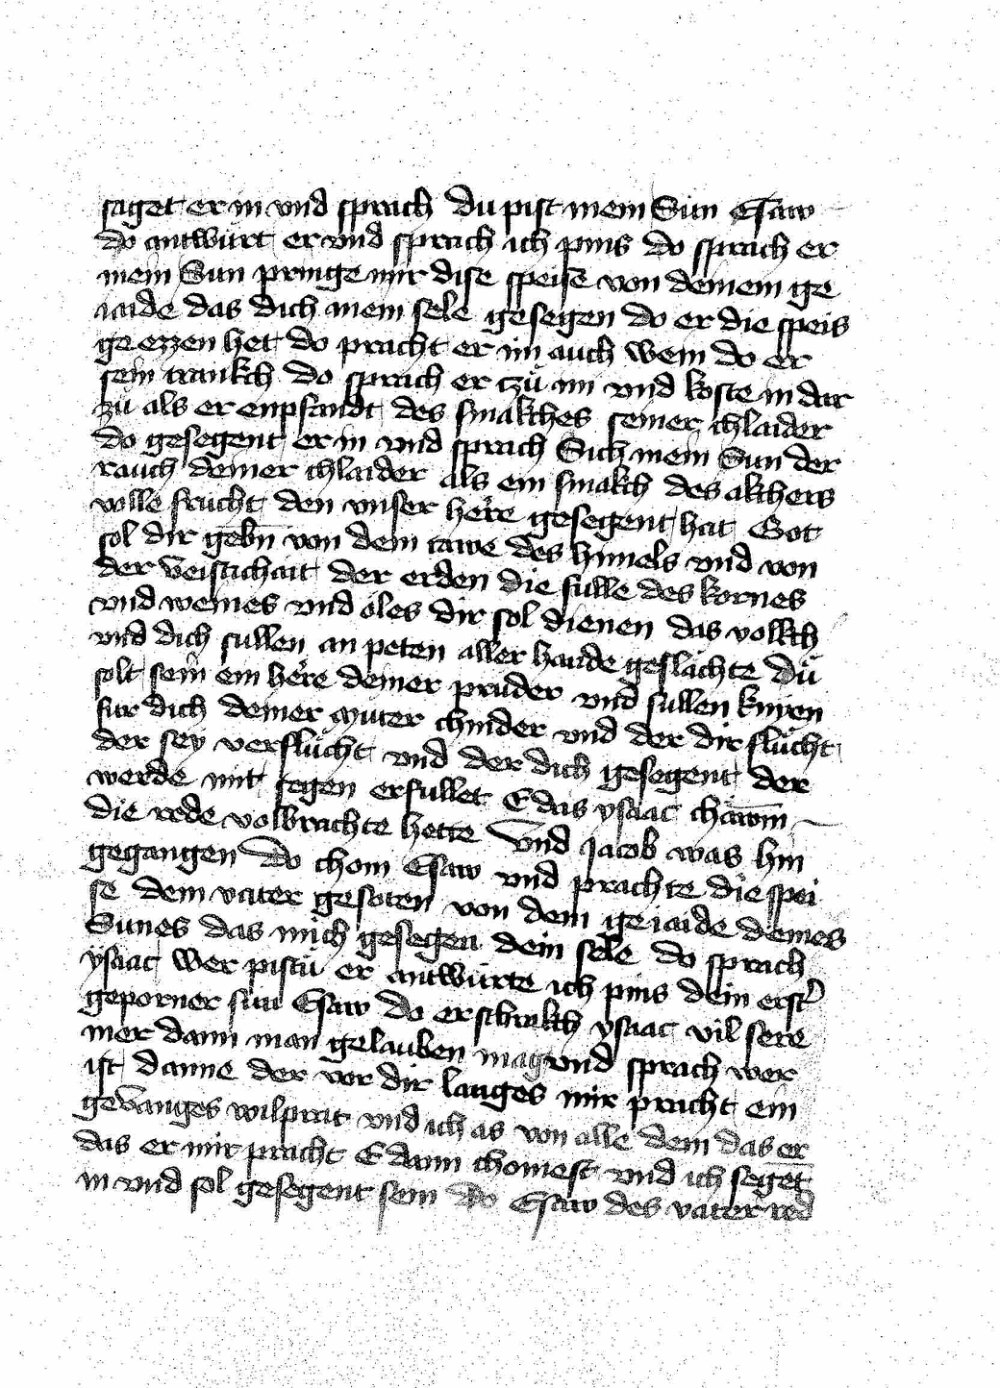 saget er in vnd sprach du pist mein Sun Esaw
do antwůrt er vnd sprach ich pins do sprach er
mein Sun pringe mir dise speise von deinem ge
iaide das dich mein sele gesegen do er die speis
geezzen het do pracht er im auch wein do er
sein trankch do sprach er czů im vnd koste in dar
zů als er enpfandt des smakches seiner chlaider
do gesegent er in vnd sprach Sich mein Sun der
rauch deiner chlaider als ein smakch des akchers
volle frucht den vnser here gesegent hat Got
sol dir gebn von dem tawe des himels vnd von
der veistichait der erden die fulle des kornes
vnd weines vnd öles dir sol dienen das vollkch
vnd dich sullen an peten aller hande geslächte Dů
solt sein ein here deiner pruder vnd sullen knyen
fur dich deiner muter chinder vnd der dir flucht
der sey verflucht vnd der dich gesegent der
werde mit segen erfullet E das ysaac chawm
die rede volbrachte hette vnd Jacob was hin
gegangen Do chom Esaw vnd prachte die spei
se dem vater gesoten von dem geiaide deines
Sunes das mich gesegen dein sele do sprach
ysaac wer pistu er antwurte ich pins dein erst
geporner sun Esaw do erschrakch ysaac vil sere
mer dann man gelauben mag vnd sprach wer
ist danne der vor dir langes mir pracht ein
gevanges wilprat vnd ich as von alle dem das er
das er mir pracht E dann chomest vnd ich seget
in vnd sol gesegent sein do Esaw des vater red